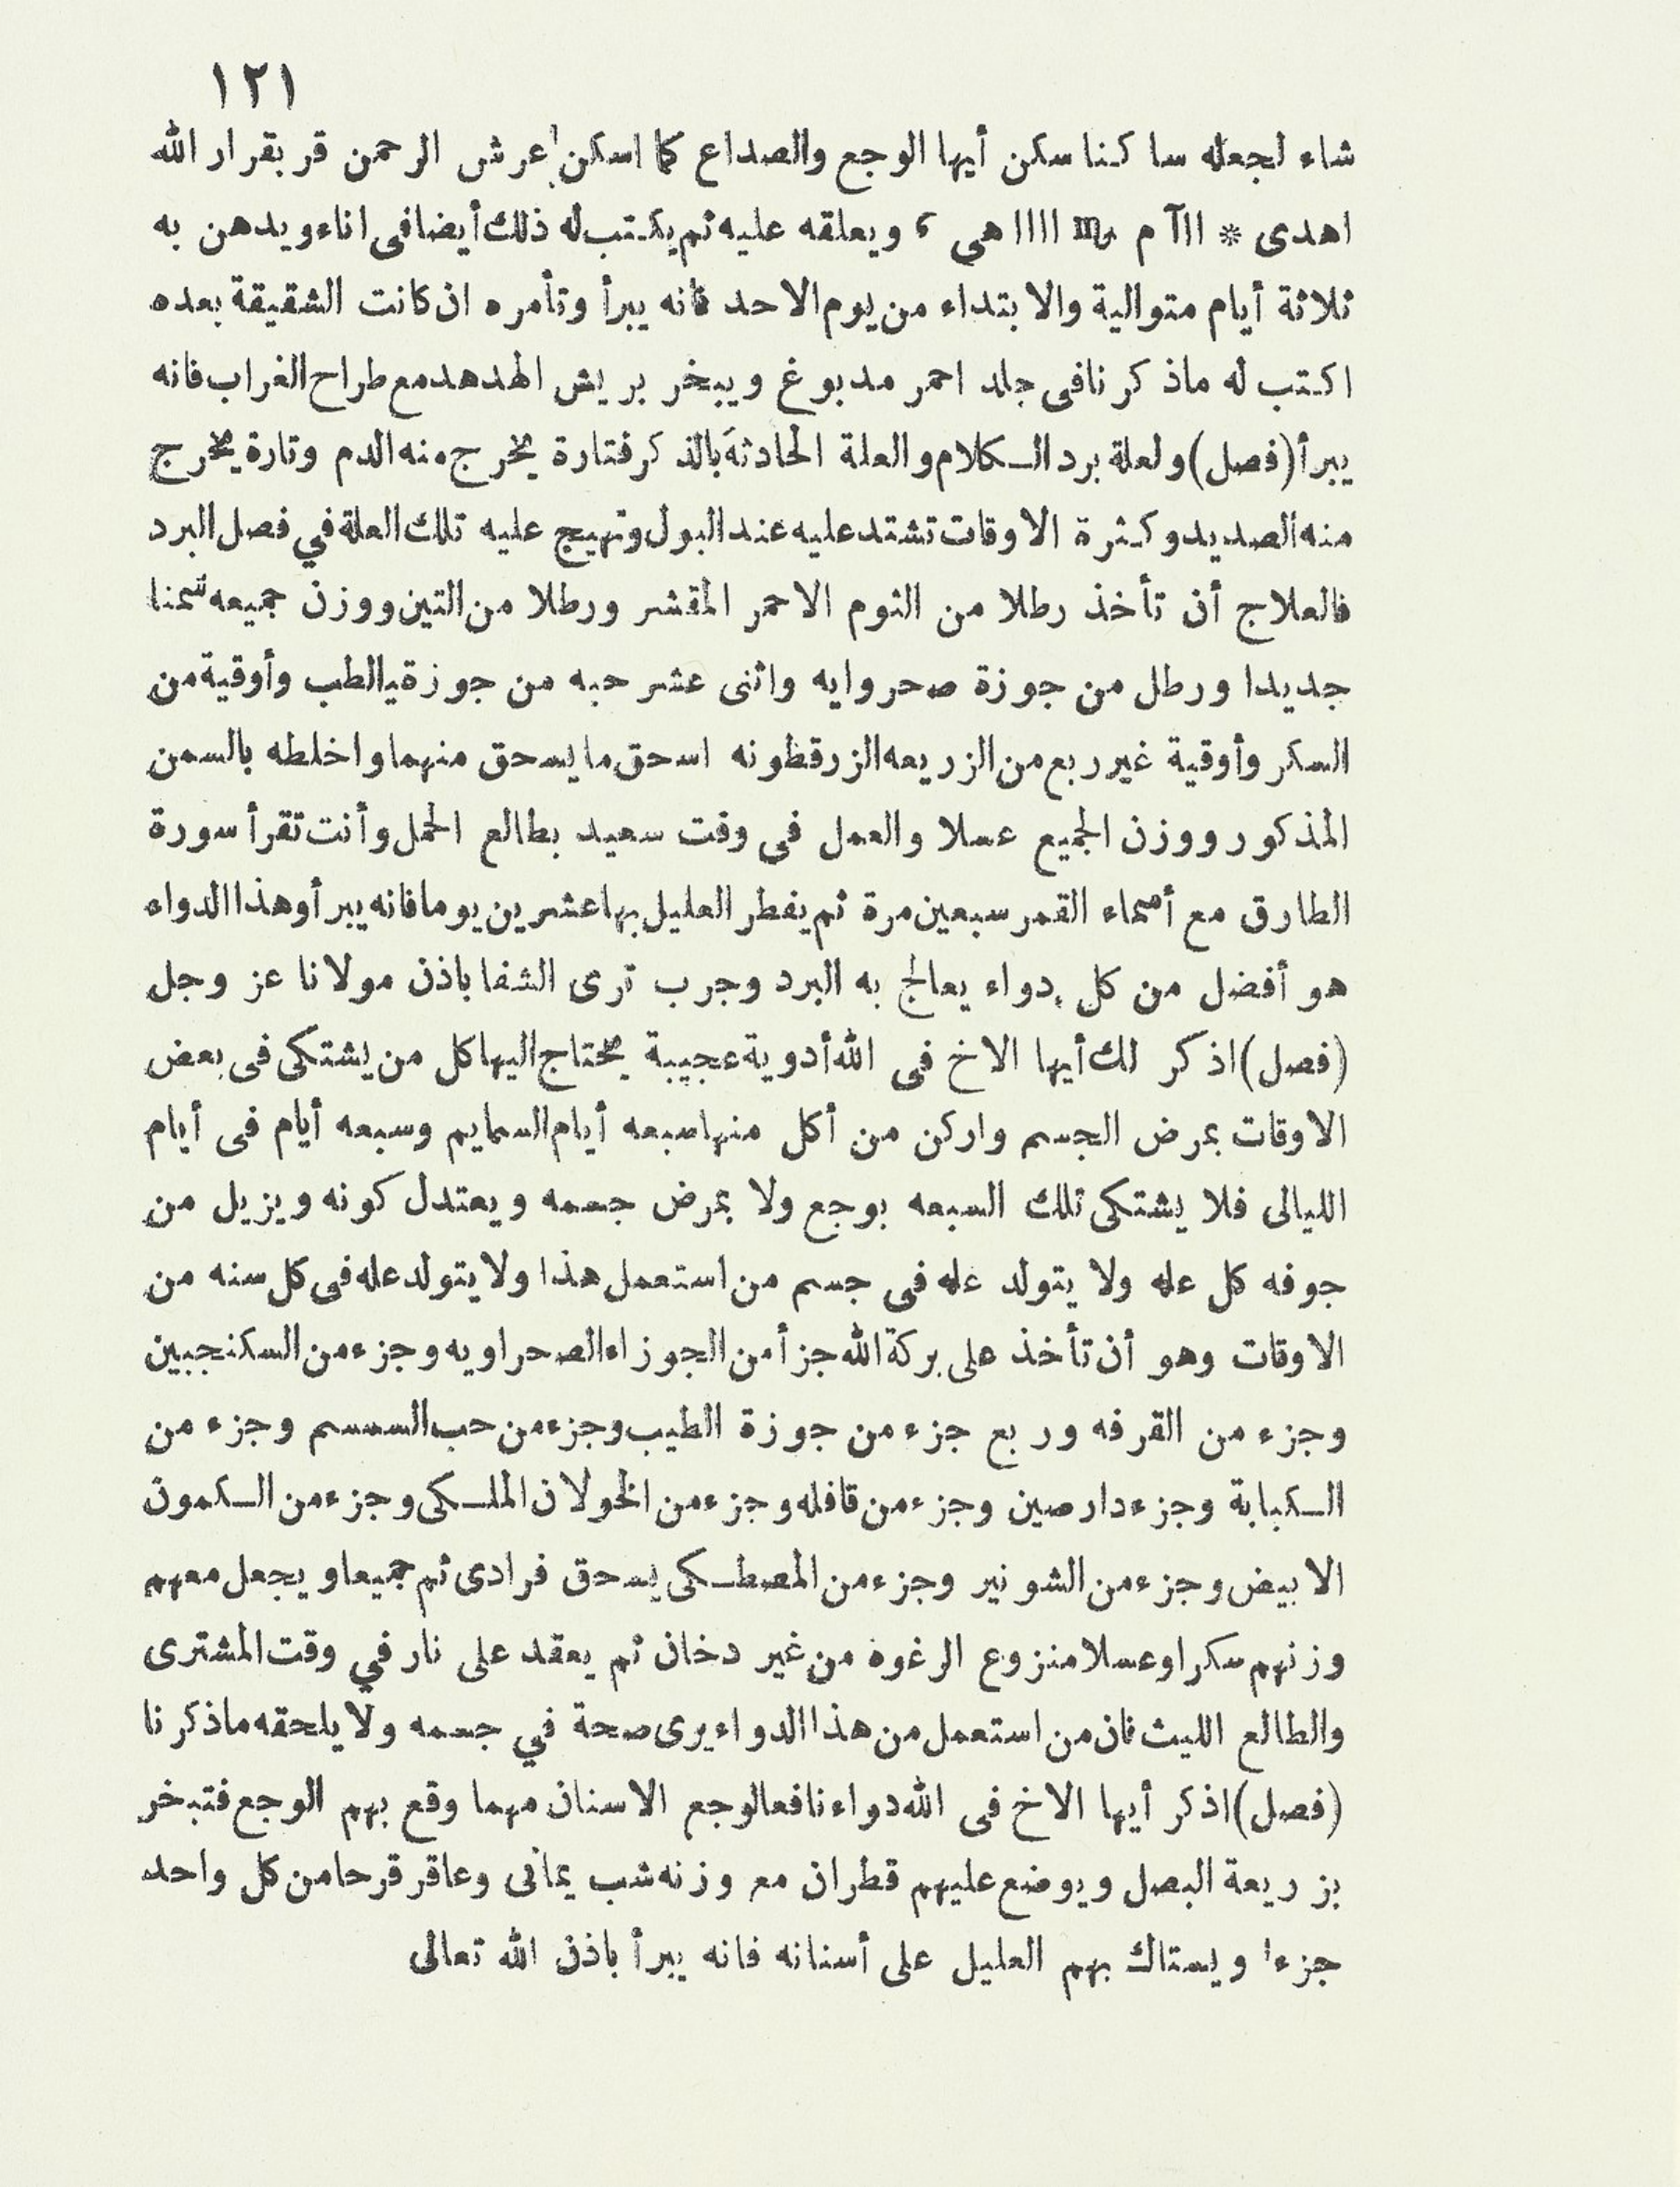 ١٢١
شاء لجعله ساكنا سكن أيها الوجع والصداع كما اسكن عرش الرحمن قر بقرار الله
اهدى * ااآ م ♏ اااا هي ء ويعلقه عليه ثم يكتب له ذلك أيضا فى اناء ويدهن به
ثلاثة أيام متوالية والابتداء من يوم الاحد فانه يبرأ وتأمره ان كانت الشقيقة بعده
اكتب له ماذكرنا فى جلد احمر مدبوغ ويبخر بريش الهدهد مع طراح الغراب فانه
يبرأ (فصل) ولعلة برد الكلام والعلة الحادثة بالذكر فتارة يخرج منه الدم وتارة يخرج
منه الصديد وكثرة الاوقات تشتد عليه عند البول وتهيج عليه تلك العلة في فصل البرد
فالعلاج أن تأخذ رطلا من الثوم الاحمر المقشر ورطلا من التين ووزن جميعه سمنا
جديدا ورطل من جوزة صحروايه واثنى عشر حبه من جوزة يالطب وأوقية من
السكر وأوقية غير ربع من الزريعه الزرقطونه اسحق ما يسحق منهما واخلطه بالسمن
المذكور ووزن الجميع عسلا والعمل فى وقت سعيد بطالع الحمل وأنت تقرأ سورة
الطارق مع أسماء القمر سبعين مرة ثم يفطر العليل بها عشرين يوما فانه يبرأ وهذا الدواء
هو أفضل من كل دواء يعالج به البرد وجرب ترى الشفا باذن مولانا عز وجل
(فصل) اذكر لك أيها الاخ فى الله أدوية عجيبة يحتاج اليها كل من يشتكى فى بعض
الاوقات بمرض الجسم واركن من أكل منها سبعه أيام السمايم وسبعه أيام فى أيام
الليالى فلا يشتكى تلك السبعه بوجع ولا بمرض جسمه ويعتدل كونه ويزيل من
جوفه كل عله ولا يتولد عله فى جسم من استعمل هذا ولا يتولد عله فى كل سنه من
الاوقات وهو أن تأخذ على بركة الله جزأ من الجوزاء الصحراويه وجزء من السكنجبين
وجزء من القرفه وربع جزء من جوزة الطيب وجزء من حب السمسم وجزء من
الكبابة وجزء دارصين وجزء من قافله وجزء من الخولان الملكى وجزء من الكمون
الابيض وجزء من الشونيز وجزء من المصطكى يسحق فرادى ثم جميعا ويجعل معهم
وزنهم سكرا وعسلا منزوع الرغوة من غير دخان ثم يعقد على نار في وقت المشترى
والطالع الليث فان من استعمل من هذا الدواء يرى صحة في جسمه ولا يلحقه ماذكرنا
(فصل) اذكر أيها الاخ فى الله دواء نافعا لوجع الاسنان مهما وقع بهم الوجع فتبخر
بزريعة البصل ويوضع عليهم قطران مع وزنه شب يمانى وعاقر قرحا من كل واحد
جزءا ويستاك بهم العليل على أسنانه فانه يبرأ باذن الله تعالى